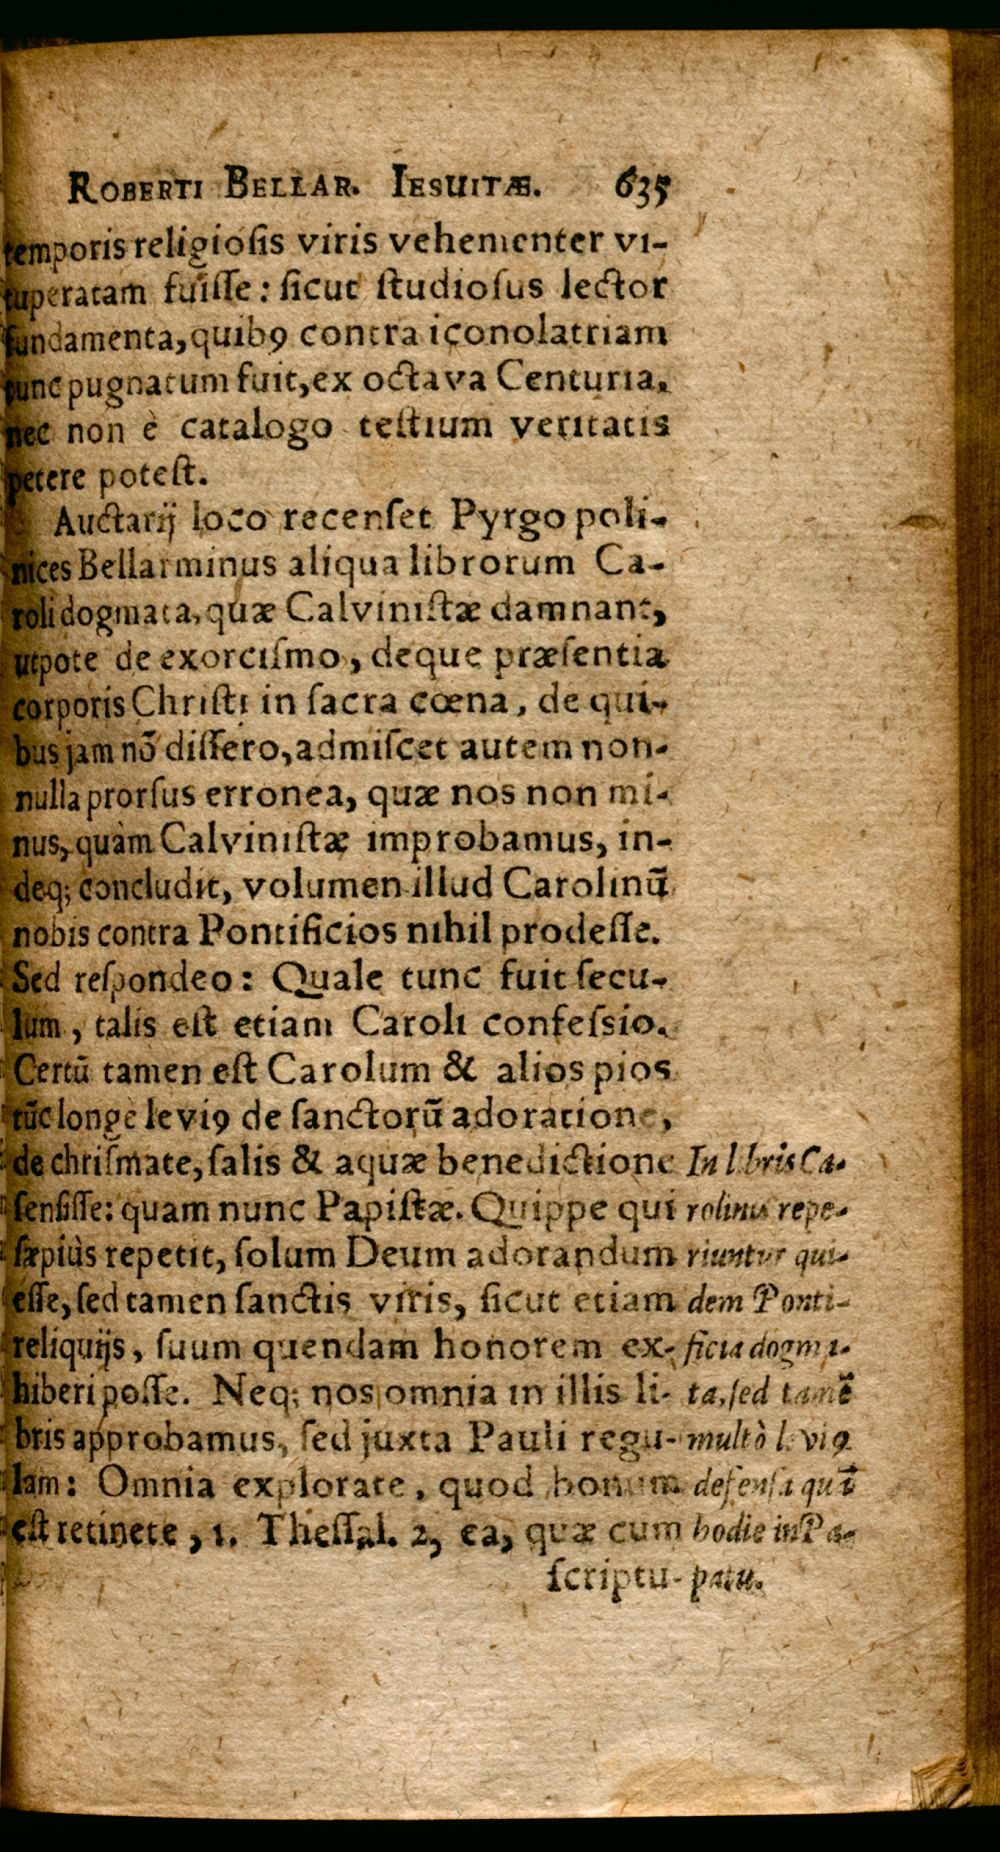 ROBERTI BELLAR. IESUITÆ. 635
temporis religiosis viris vehementer vi-
tuperatam fuisse: sicut studiosus lector
fundamenta, quibꝰ contra iconolatriam
tunc pugnatum fuit, ex octava Centuria,
nec non è catalogo testium veritatis
petere potest.
Auctarij loco recenset Pyrgo poli-
nices Bellarminus aliqua librorum Ca-
roli dogmata, quæ Calvinistæ damnant,
utpote de exorcismo, deque præsentia
corporis Christi in sacra cœna, de qui-
bus jam nō dissero, admiscet autem non-
nulla prorsus erronea, quæ nos non mi-
nus, quàm Calvinistæ improbamus, in-
deq; concludit, volumen illud Carolinū
nobis contra Pontificios nihil prodesse.
Sed respondeo: Quale tunc fuit secu-
lum, talis est etiam Caroli confessio.
Certū tamen est Carolum & alios pios
tūc longè leviꝰ de sanctorū adoratione,
de chrismate, salis & aquæ benedictione
sensisse: quam nunc Papistæ. Quippe qui
sæpiùs repetit, solum Deum adorandum
esse, sed tamen sanctis viris, sicut etiam
reliquijs, suum quendam honorem ex-
hiberi posse. Neq; nos omnia in illis li-
bris approbamus, sed juxta Pauli regu-
lam: Omnia explorate, quod bonum
est retinete, 1. Thessal. 2, ea, quæ cum
scriptu-
In libris Ca-
rolinis repe-
riuntur qui-
dem Ponti-
ficia dogma-
ta, sed tamē
multò leviꝰ
defensa quā
hodie in Pa-
patu.